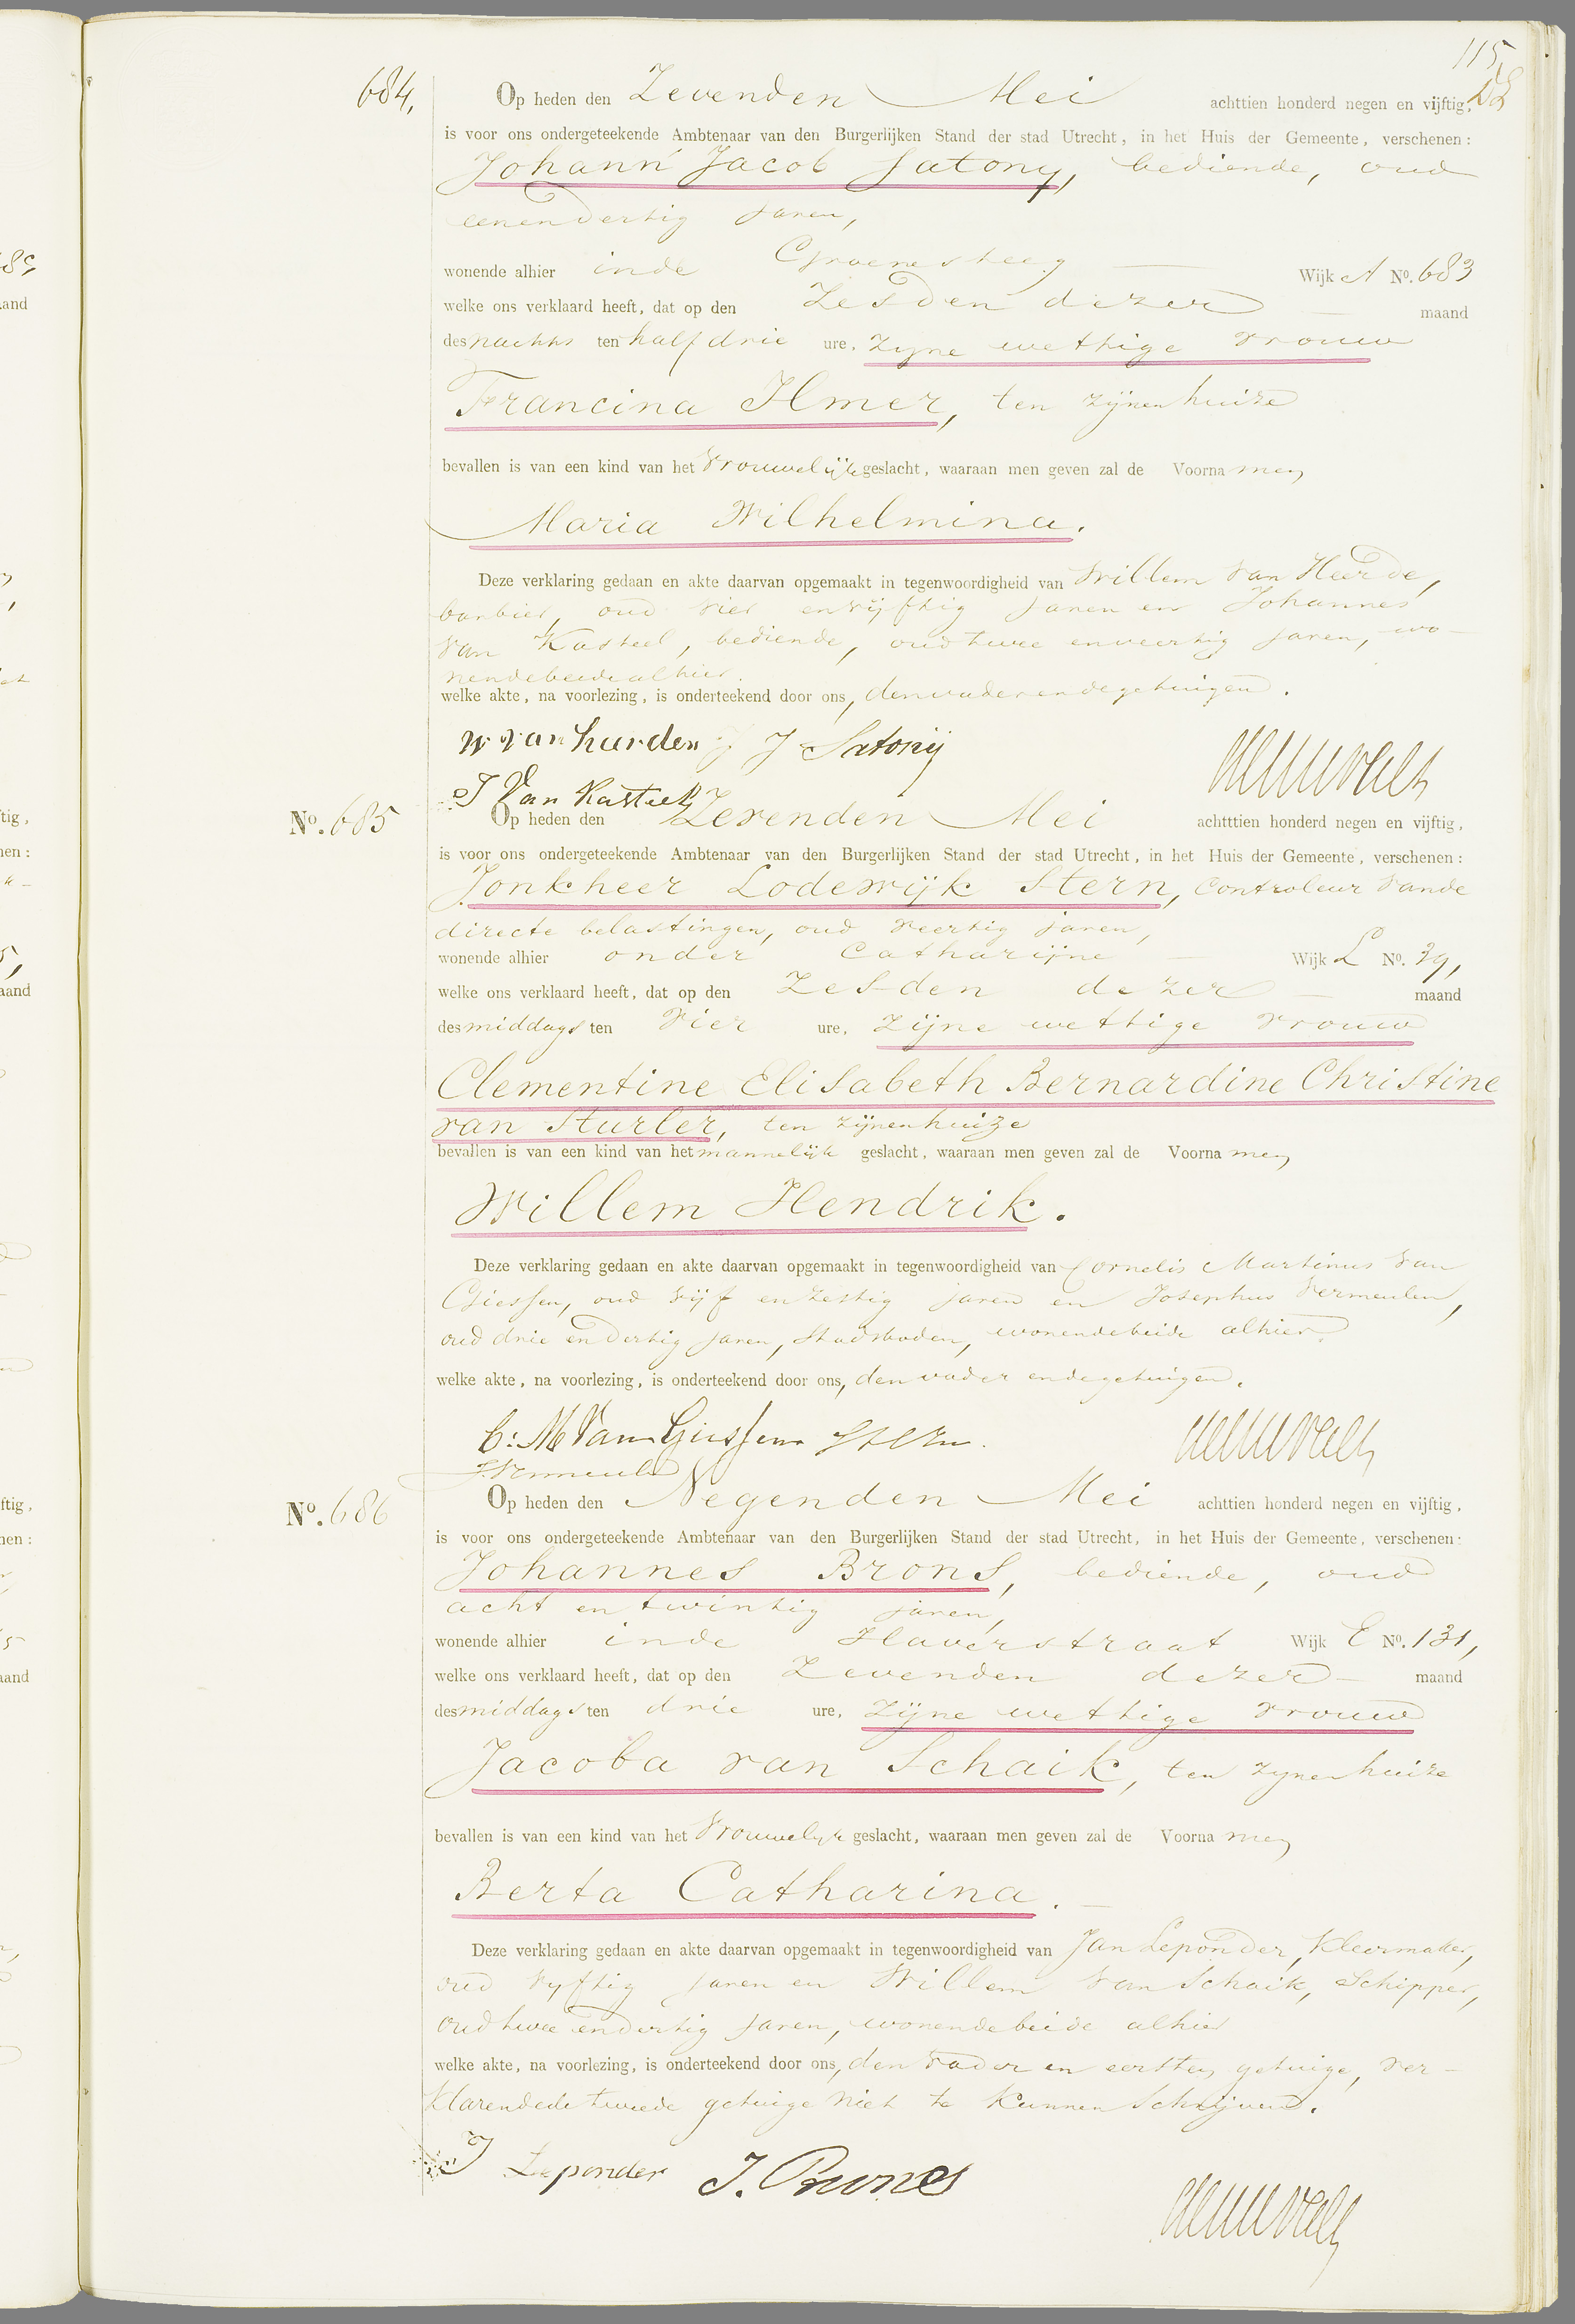 115,
684, Op heden den Zevenden Mei achttien honderd negen en vijftig,
is voor ons ondergeteekende Ambtenaar van den Burgerlijken Stand der stad Utrecht, in het Huis der Gemeente, verschenen:
Johann Jacob Satony, bediende, oud
eenendertig jaren,
wonende alhier inde Groenesteeg Wijk A No. 683
welke ons verklaard heeft, dat op den Zesden dezer maand
des nachts ten half drie ure, zyne wettige vrouw
Francina Ilmer, ten zijnen huize
bevallen is van een kind van het Vrouwelijk geslacht, waaraan men geven zal de Voorna men
Maria Wilhelmina.
Deze verklaring gedaan en akte daarvan opgemaakt in tegenwoordigheid van Willem van Heerde,
barbier, oud vier envijftig jaren en Johannes
van Kasteel, bediende, oud twee enveertig jaren, wo-
nendebeide alhier.
welke akte, na voorlezing, is onderteekend door ons, denvader endegetuigen.
W van Hurden J J Satonij
J Van Kasteel
No. 685 Op heden den Zevenden Mei achtttien honderd negen en vijftig,
is voor ons ondergeteekende Ambtenaar van den Burgerlijken Stand der stad Utrecht, in het Huis der Gemeente, verschenen:
Jonkheer Lodewijk Stern, Controleur vande
directe belastingen, oud veertig jaren,
wonende alhier onder Catharijne Wijk L No. 39,
welke ons verklaard heeft, dat op den Zesden dezer maand
des middags ten Vier ure, zijne wettige vrouw
Clementine Elisabeth Bernardine Christine
van Sturler, ten zijnenhuize
bevallen is van een kind van het mannelijk geslacht, waaraan men geven zal de Voorna men
Willem Hendrik.
Deze verklaring gedaan en akte daarvan opgemaakt in tegenwoordigheid van Cornelis Martinus van
Giessen, oud vijf enzestig jaren en Josephus Vermeulen,
oud drie endertig jaren, Stadsboden, wonendebeide alhier.
welke akte, na voorlezing, is onderteekend door ons, denvader endegetuigen.
C: M Van Giessen Stern.
J. Vermeulen
No. 686 Op heden den Negenden Mei achttien honderd negen en vijftig,
is voor ons ondergeteekende Ambtenaar van den Burgerlijken Stand der stad Utrecht, in het Huis der Gemeente, verschenen:
Johannes Brons, bediende, oud
acht entwintig jaren,
wonende alhier inde Haverstraat Wijk E No. 131,
welke ons verklaard heeft, dat op den Zevenden dezer maand
des middags ten drie ure, zijne wettige vrouw
Jacoba van Schaik, ten zynen huize
bevallen is van een kind van het Vrouwelyk geslacht, waaraan men geven zal de Voorna men
Berta Catharina.
Deze verklaring gedaan en akte daarvan opgemaakt in tegenwoordigheid van Jan Leponder, Kleermaker,
oud vyftig jaren en Willem van Schaik, Schipper,
oud twee endertig jaren, wonendebeide alhier
welke akte, na voorlezing, is onderteekend door ons, den vader en eersten getuige, ver-
klarendede tweede getuige niet te kunnen Schrijven.
J Leponder J. Brons